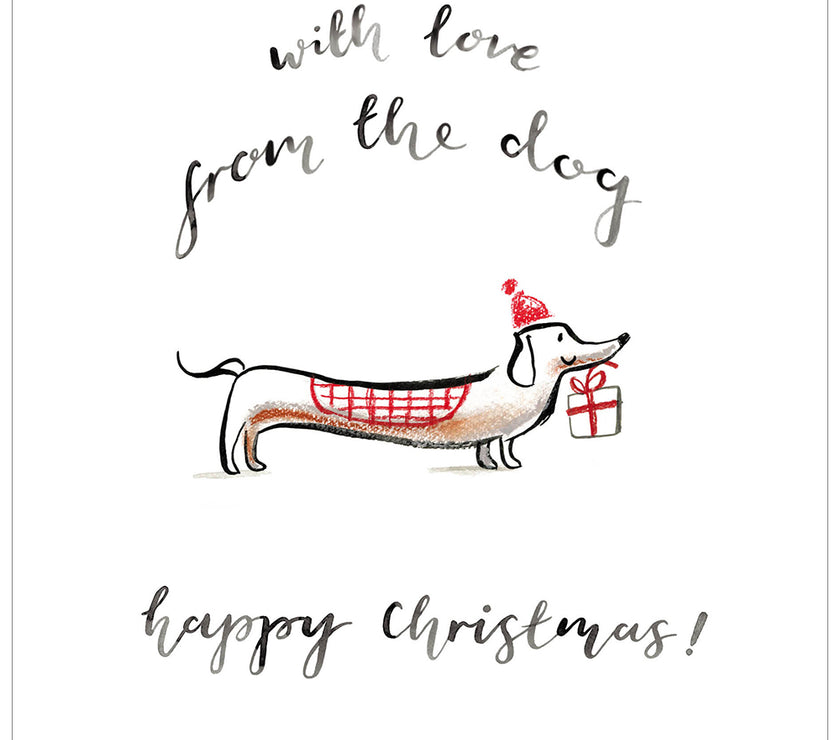 with love
from the dog
happy Christmas!